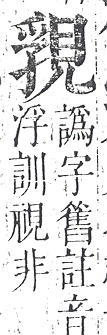 譌字舊註音
浮訓視非